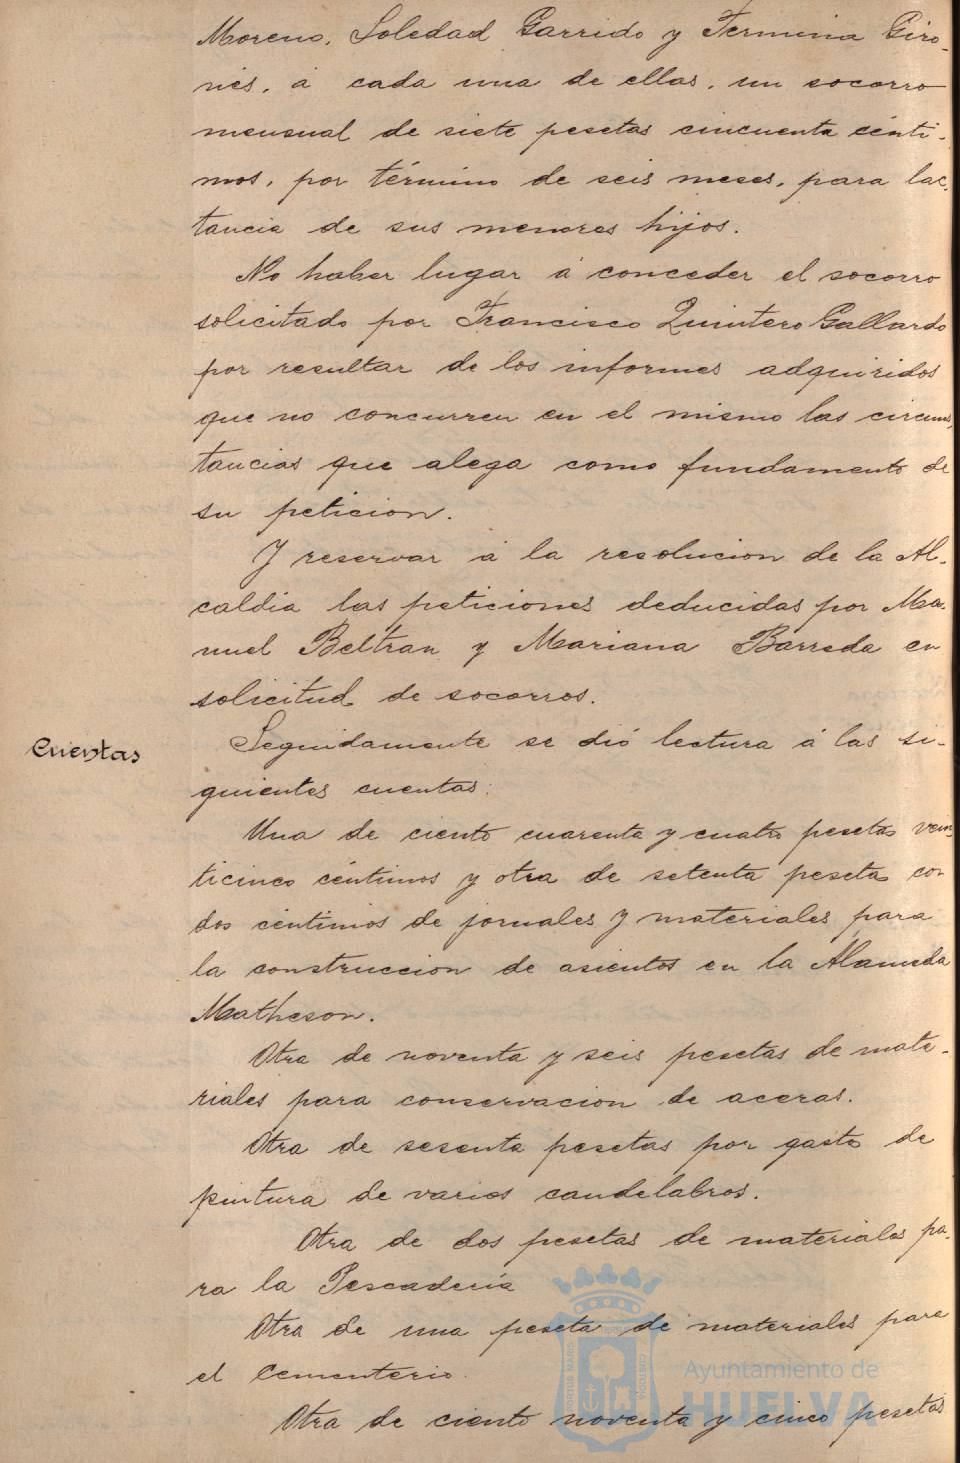 Moreno, Soledad Garrido y Fermina Giro-
nés, á cada una de ellas, un socorro
mensual de siete pesetas cincuenta cénti-
mos, por término de seis meses, para lac-
tancia de sus menores hijos.
No haber lugar á conceder el socorro
solicitado por Francisco Quintero Gallardo
por resultar de los informes adquiridos
que no concurren en el mismo las circuns-
tancias que alega como fundamento de
su peticion.
Y reservar á la resolucion de la Al-
caldia las peticiones deducidas por Ma-
nuel Beltran y Mariana Barreda en
solicitud de socorros.
Cuentas
Seguidamente se dió lectura á las si-
guientes cuentas:
Una de ciento cuarenta y cuatro pesetas vein-
ticinco céntimos y otra de setenta pesetas con
dos céntimos de jornales y materiales para
la construccion de asientos en la Alameda
Matheson.
Otra de noventa y seis pesetas de mate-
riales para conservacion de aceras.
Otra de sesenta pesetas por gasto de
pintura de varios candelabros.
Otra de dos pesetas de materiales pa-
ra la Pescadería
Otra de una peseta de materiales para
el cementerio.
Otra de ciento noventa y cinco pesetas
PORTUS MARIS
CUSTODIA
Ayuntamiento de
HUELVA